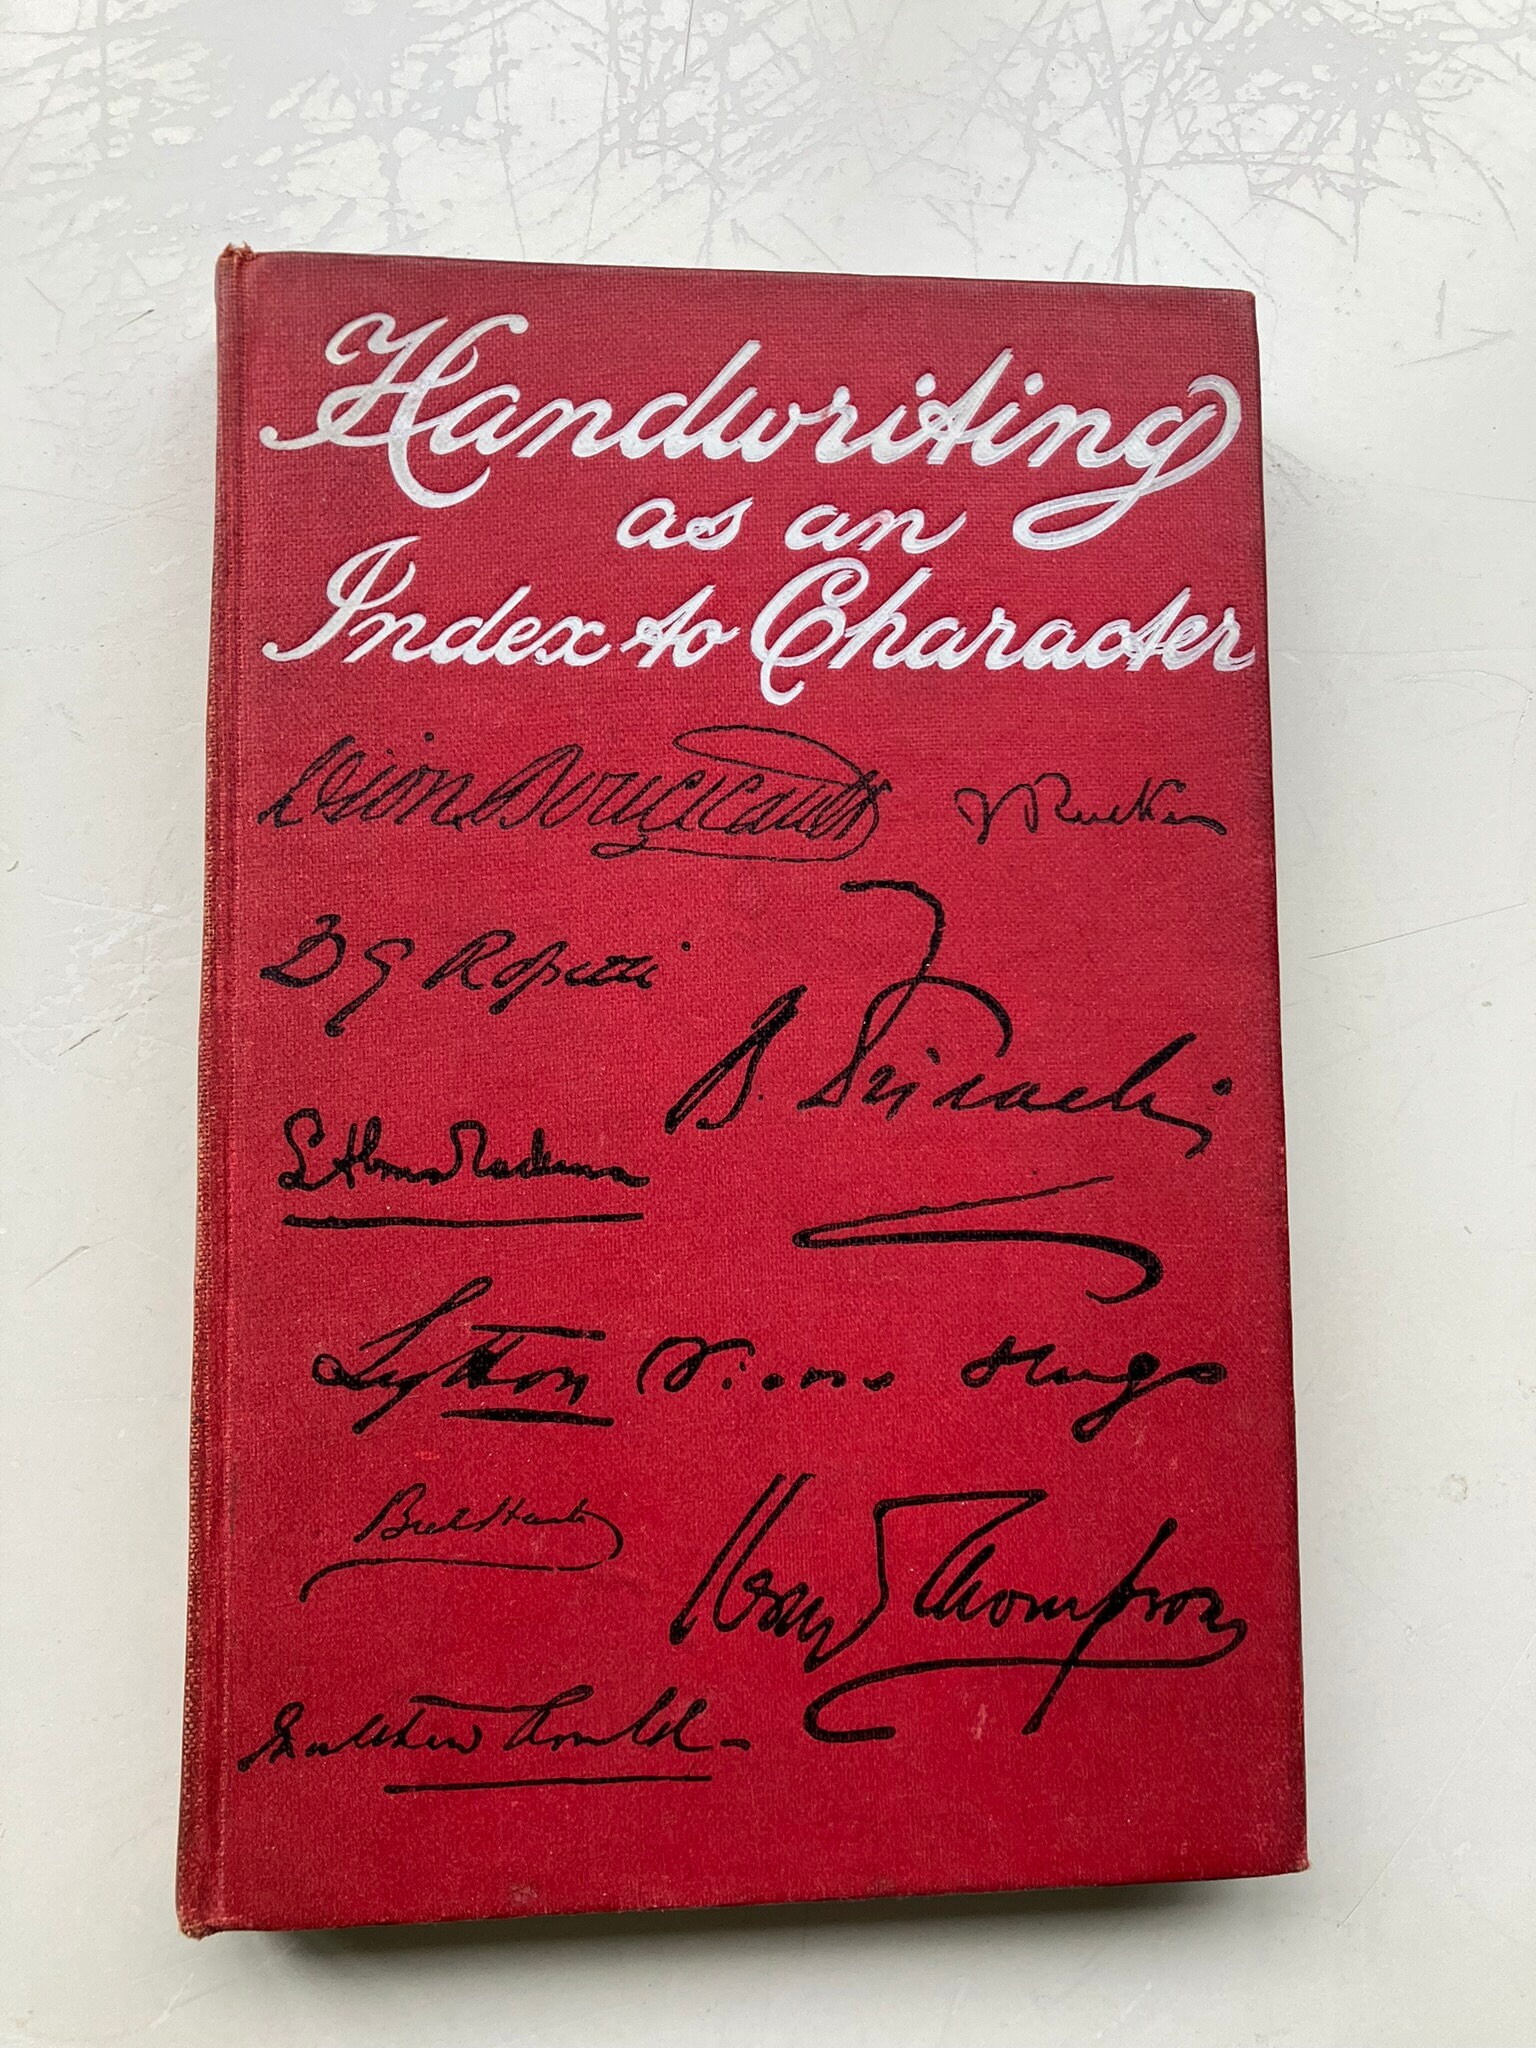 Handwriting
as an
Index to Character
Dion Boucicault
J Ruskin
D G Rossetti
B. Disraeli
L Alma Tadema
Lytton
Victor Hugo
Bret Harte
Henry Thompson
Matthew Arnold